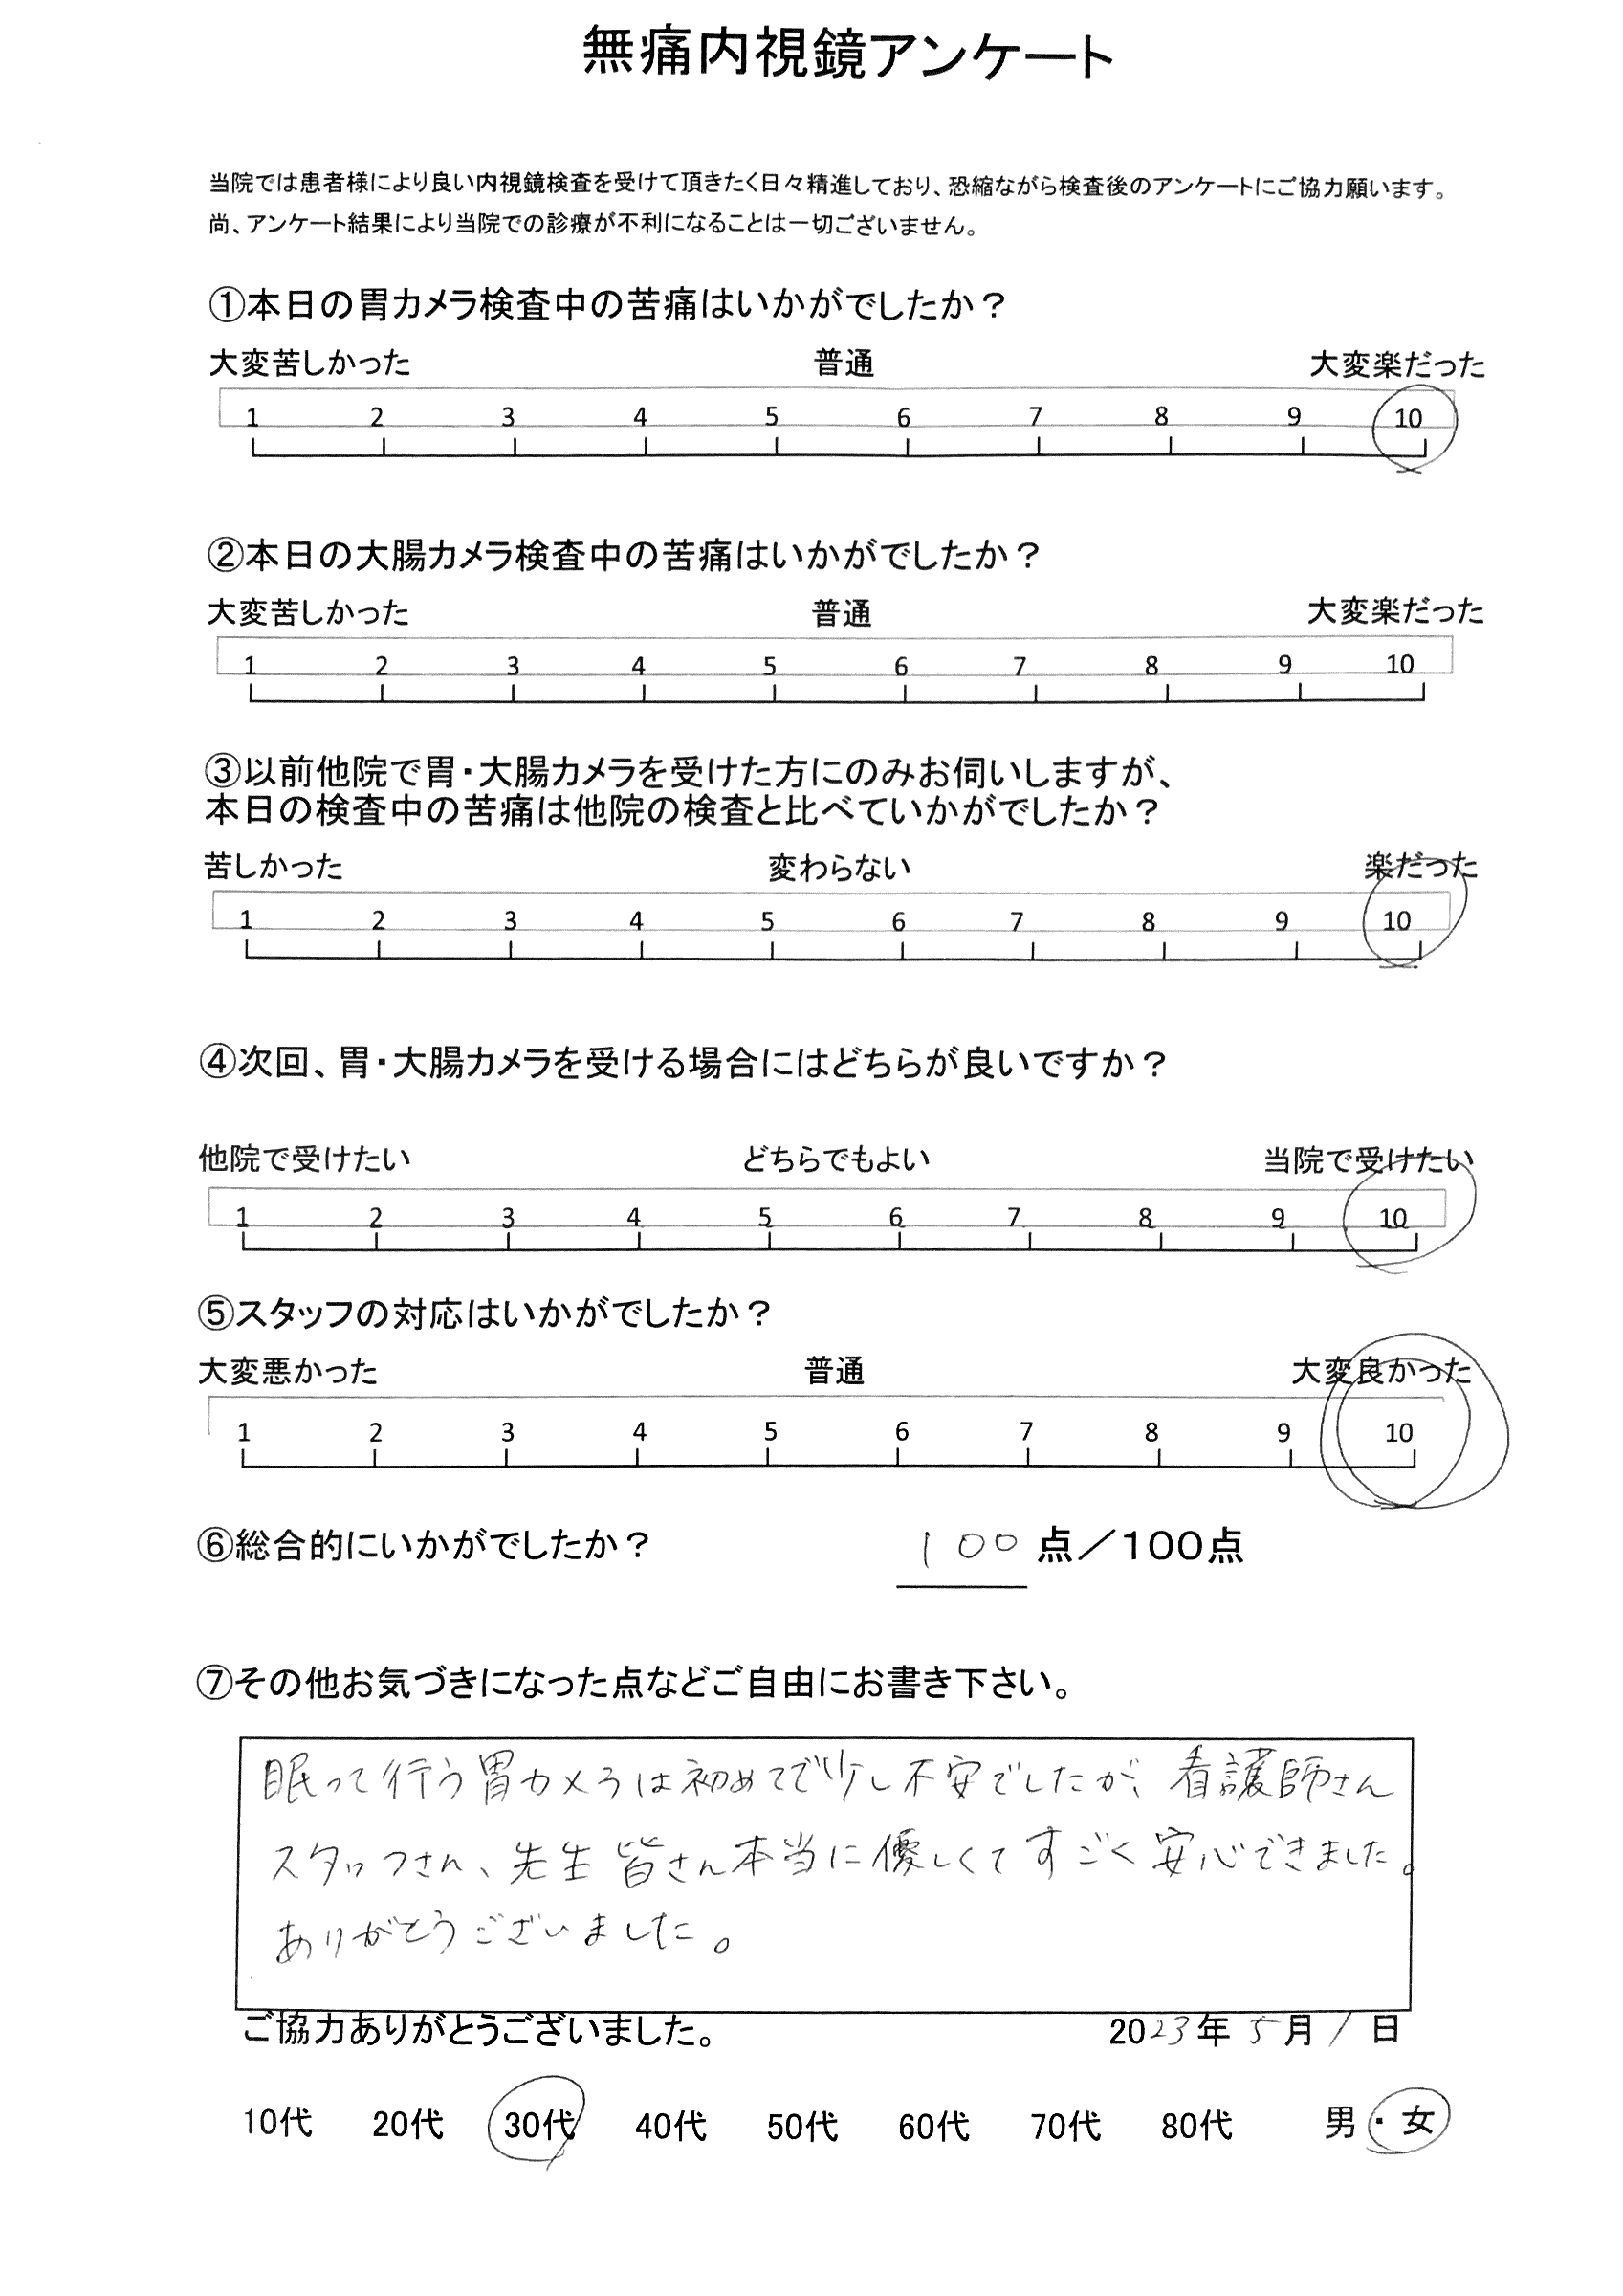 無痛内視鏡アンケート
当院では患者様により良い内視鏡検査を受けて頂きたく日々精進しており、恐縮ながら検査後のアンケートにご協力願います。
尚、アンケート結果により当院での診療が不利になることは一切ございません。
①本日の胃カメラ検査中の苦痛はいかがでしたか？
大変苦しかった 普通 大変楽だった
1 2 3 4 5 6 7 8 9 10
②本日の大腸カメラ検査中の苦痛はいかがでしたか？
大変苦しかった 普通 大変楽だった
1 2 3 4 5 6 7 8 9 10
③以前他院で胃・大腸カメラを受けた方にのみお伺いしますが、
本日の検査中の苦痛は他院の検査と比べていかがでしたか？
苦しかった 変わらない 楽だった
1 2 3 4 5 6 7 8 9 10
④次回、胃・大腸カメラを受ける場合にはどちらが良いですか？
他院で受けたい どちらでもよい 当院で受けたい
1 2 3 4 5 6 7 8 9 10
⑤スタッフの対応はいかがでしたか？
大変悪かった 普通 大変良かった
1 2 3 4 5 6 7 8 9 10
⑥総合的にいかがでしたか？ 100 点／100点
⑦その他お気づきになった点などご自由にお書き下さい。
眠って行う胃カメラは初めてで少し不安でしたが、看護師さん
スタッフさん、先生皆さん本当に優しくてすごく安心できました。
ありがとうございました。
ご協力ありがとうございました。 2023年 5月 1日
10代 20代 30代 40代 50代 60代 70代 80代 男・女